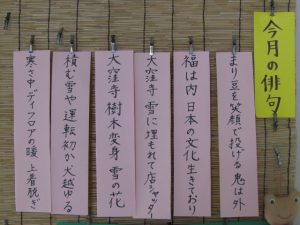 今月の俳句
まり豆を笑顔で投げる鬼は外
福は内日本の文化生きており
大窪寺 雪に埋もれて店シャッター
大窪寺 樹木変身 雪の花
積む雪や 運転初か犬越ゆる
寒さ中デイフロアの暖 上着脱ぎ